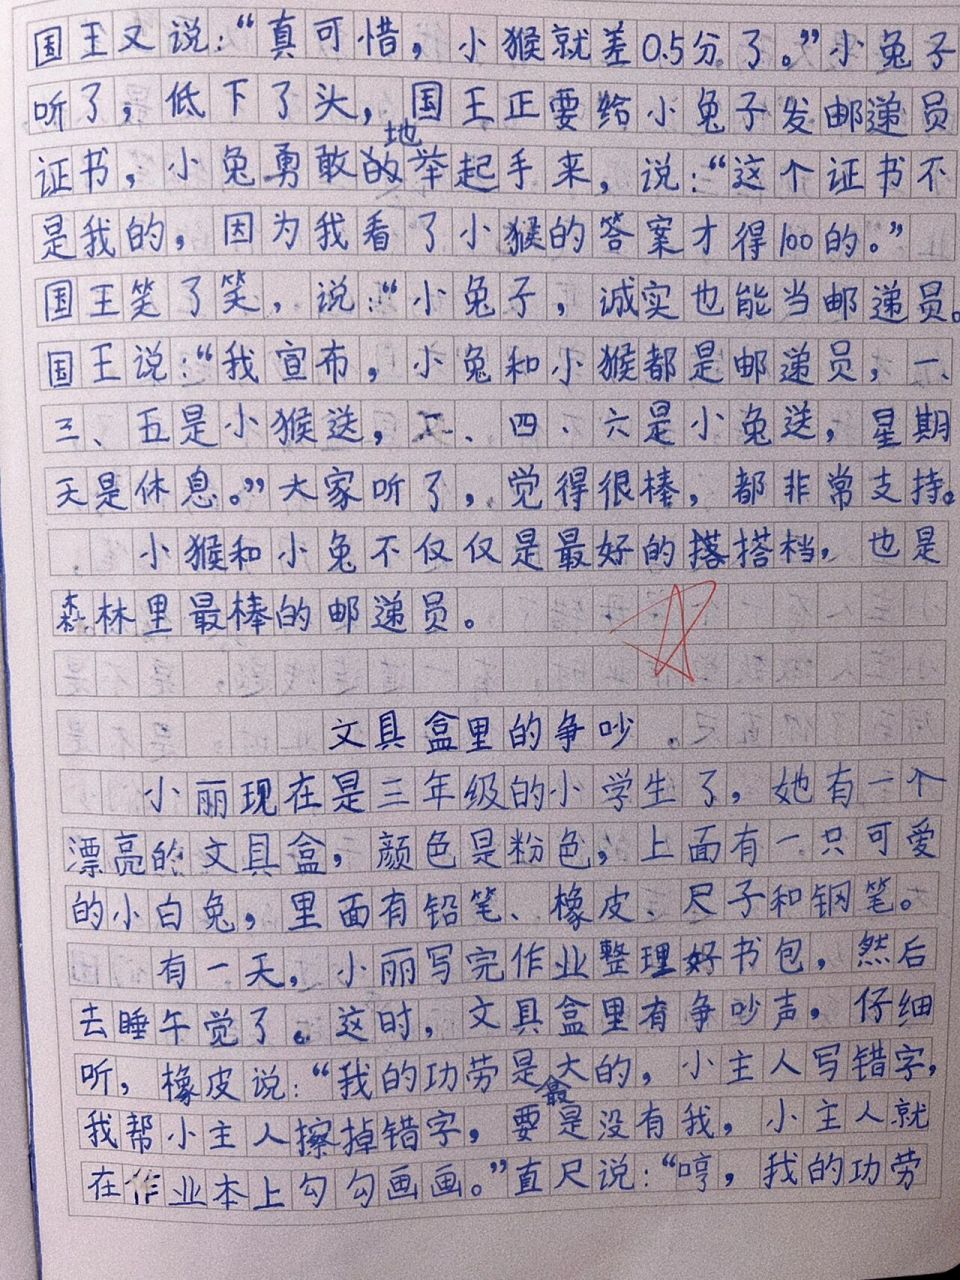 国王又说：“真可惜，小猴就差0.5分了。”小兔子
听了，低下了头，国王正要给小兔子发邮递员
证书，小兔勇敢地举起手来，说：“这个证书不
是我的，因为我看了小猴的答案才得100的。”
国王笑了笑，说：“小兔子，诚实也能当邮递员。
国王说：“我宣布，小兔和小猴都是邮递员，一、
三、五是小猴送，二、四、六是小兔送，星期
天是休息。”大家听了，觉得很棒，都非常支持。
小猴和小兔不仅仅是最好的搭档，也是
森林里最棒的邮递员。
文具盒里的争吵
小丽现在是三年级的小学生了，她有一个
漂亮的文具盒，颜色是粉色，上面有一只可爱
的小白兔，里面有铅笔、橡皮、尺子和钢笔。
有一天，小丽写完作业整理好书包，然后
去睡午觉了。这时，文具盒里有争吵声，仔细
听，橡皮说：“我的功劳是最大的，小主人写错字，
我帮小主人擦掉错字，要是没有我，小主人就
在作业本上勾勾画画。”直尺说：“哼，我的功劳